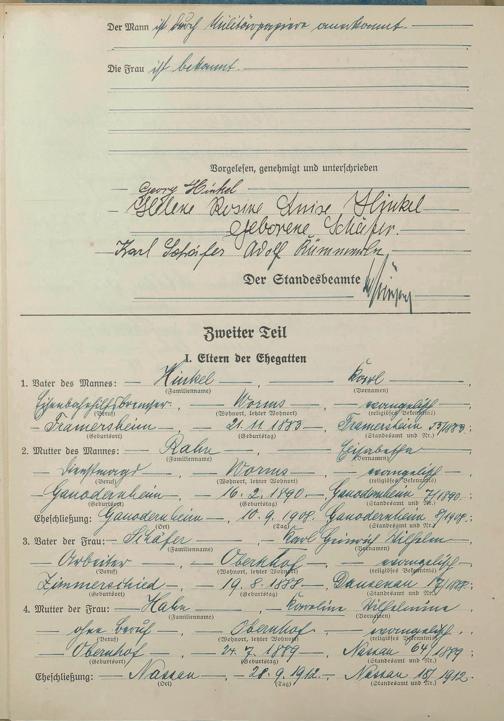 Der Mann ist durch Militärpapiere anerkannt.
Die Frau ist bekannt.
Vorgelesen, genehmigt und unterschrieben
Georg Hinkel
Helene Rosine Luise Hinkel
geborene Schäfer.
Karl Schäfer Adolf Kümmerle
Der Standesbeamte
Zweiter Teil
I. Eltern der Ehegatten
1. Vater des Mannes: Hinkel, Karl
(Familienname) (Vornamen)
Eisenbahnhilfsbremser, Worms, evangelisch
(Beruf) (Wohnort, letzter Wohnort) (religiöses Bekenntnis)
Framersheim, 21.11.1883, Framersheim /1883.
(Geburtsort) (Geburtstag) (Standesamt und Nr.)
2. Mutter des Mannes: Rahn, Elisabetha
(Familienname) (Vornamen)
Dienstmagd, Worms, evangelisch
(Beruf) (Wohnort, letzter Wohnort) (religiöses Bekenntnis)
16.2.1890, 7/1890.
(Geburtsort) (Geburtstag) (Standesamt und Nr.)
Eheschließung: 10.9.1908, 8/1908.
(Ort) (Tag) (Standesamt und Nr.)
3. Vater der Frau: Schäfer, Karl Heinrich Wilhelm
(Familienname) (Vornamen)
Arbeiter, Obernhof, evangelisch
(Beruf) (Wohnort, letzter Wohnort) (religiöses Bekenntnis)
Zimmerschied, 19.8.1888, Dausenau /1888.
(Geburtsort) (Geburtstag) (Standesamt und Nr.)
4. Mutter der Frau: Hahn, Karoline Wilhelmine
(Familienname) (Vornamen)
ohne Beruf, Obernhof, evangelisch.
(Beruf) (Wohnort, letzter Wohnort) (religiöses Bekenntnis)
Obernhof, 24.7.1889, Nassau 64/1889
(Geburtsort) (Geburtstag) (Standesamt und Nr.)
Eheschließung: Nassau, 28.9.1912, Nassau 18/1912.
(Ort) (Tag) (Standesamt und Nr.)